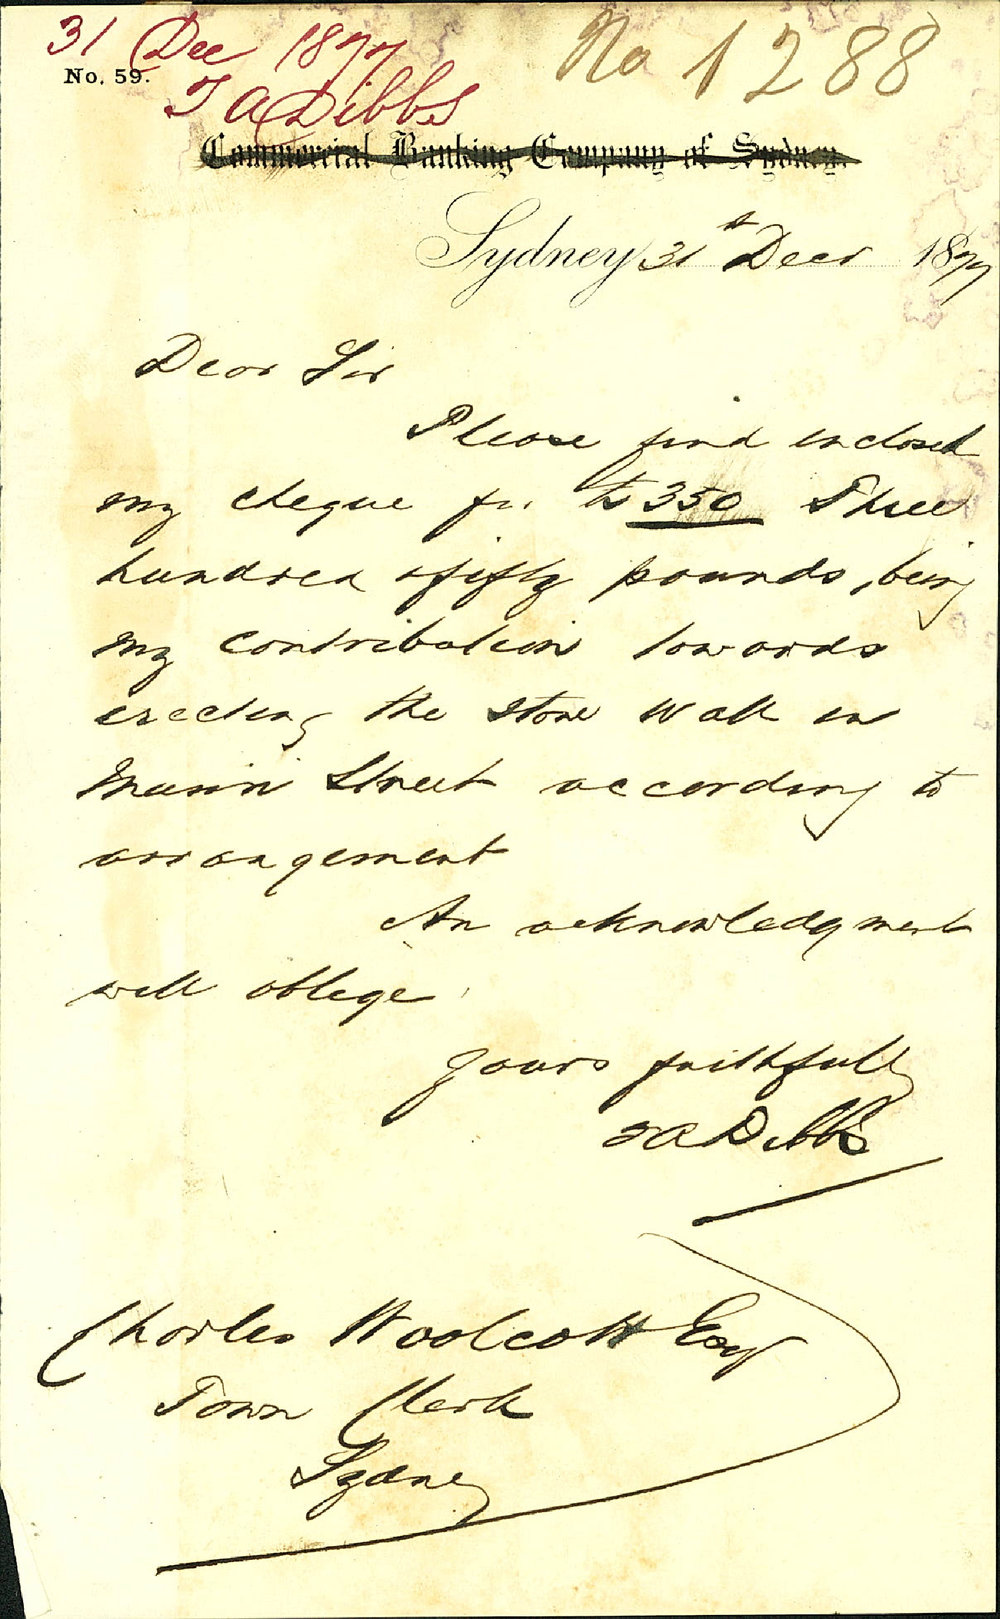 31 Dec 1877
No. 59.
T A Dibbs
No 1288
Commercial Banking Company of Sydney.
Sydney 31st Decr 1877
Dear Sir
Please find enclosed
my cheque for £350 Three
hundred & fifty pounds, being
my contribution towards
erecting the stone wall in
Street according to
arrangement
An acknowledgment
will oblige
Yours faithfully
T A Dibbs
Charles Woolcott Esq
Town Clerk
Sydney